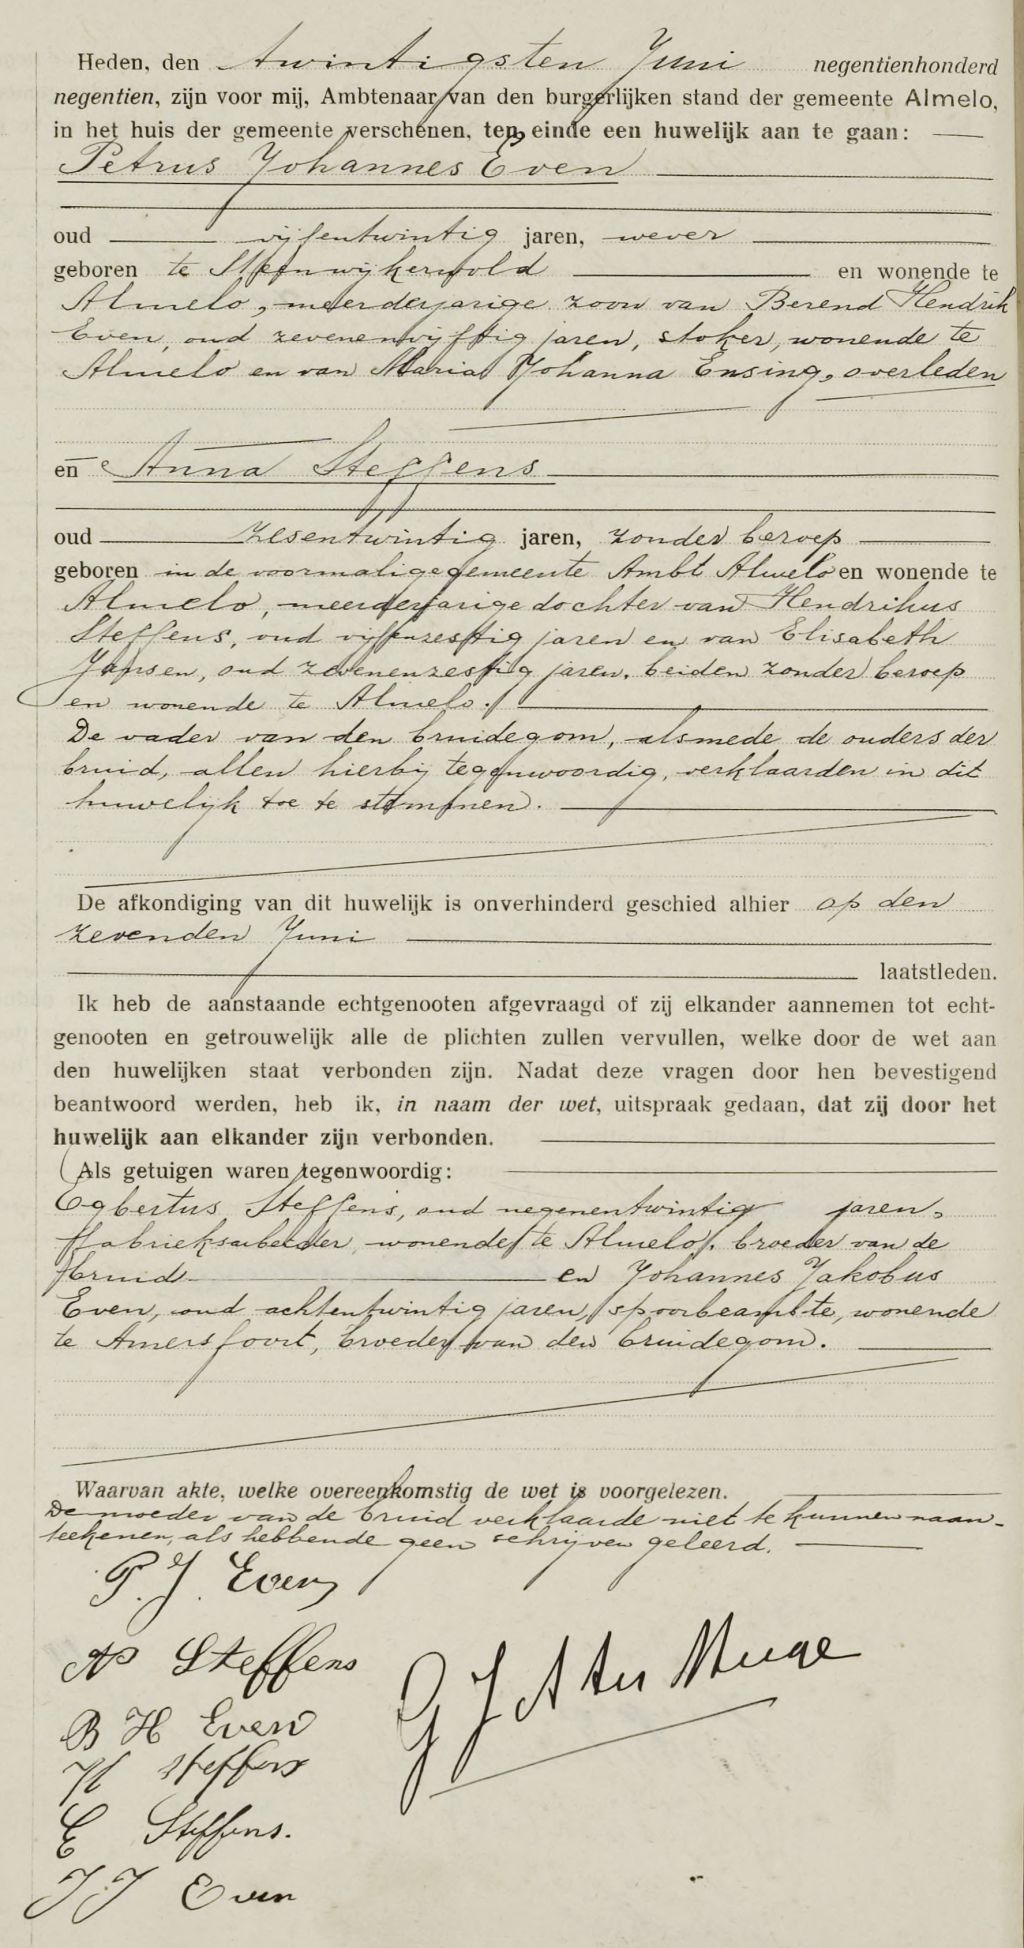 Heden, den twintigsten Juni negentienhonderd
negentien, zijn voor mij, Ambtenaar van den burgerlijken stand der gemeente Almelo,
in het huis der gemeente verschenen, ten einde een huwelijk aan te gaan:
Petrus Johannes Even
oud vijfentwintig jaren, wever
geboren te Steenwijkerwold en wonende te
Almelo, meerderjarige zoon van Berend Hendrik
Even, oud zevenenvijftig jaren, stoker, wonende te
Almelo en van Maria Johanna Ensing, overleden
en Anna Steffens
oud zesentwintig jaren, zonder beroep
geboren in de voormalige gemeente Ambt Almelo en wonende te
Almelo, meerderjarige dochter van Hendrikus
Steffens, oud vijfenzestig jaren en van Elisabeth
Jansen, oud zevenenzestig jaren, beiden zonder beroep
en wonende te Almelo.
De vader van den bruidegom, alsmede de ouders der
bruid, allen hierbij tegenwoordig, verklaarden in dit
huwelijk toe te stemmen.
De afkondiging van dit huwelijk is onverhinderd geschied alhier op den
zevenden Juni
laatstleden.
Ik heb de aanstaande echtgenooten afgevraagd of zij elkander aannemen tot echt-
genooten en getrouwelijk alle de plichten zullen vervullen, welke door de wet aan
den huwelijken staat verbonden zijn. Nadat deze vragen door hen bevestigend
beantwoord werden, heb ik, in naam der wet, uitspraak gedaan, dat zij door het
huwelijk aan elkander zijn verbonden.
Als getuigen waren tegenwoordig:
Egbertus Steffens, oud negenentwintig jaren,
fabrieksarbeider, wonende te Almelo, broeder van de
bruid en Johannes Jakobus
Even, oud achtentwintig jaren, spoorbeambte, wonende
te Amersfoort, broeder van den bruidegom.
Waarvan akte, welke overeenkomstig de wet is voorgelezen.
De moeder van de bruid verklaarde niet te kunnen naam-
teekenen, als hebbende geen schrijven geleerd.
P. J. Even
A Steffens
B H Even
H Steffens
G J A ter
E Steffens.
J J Even